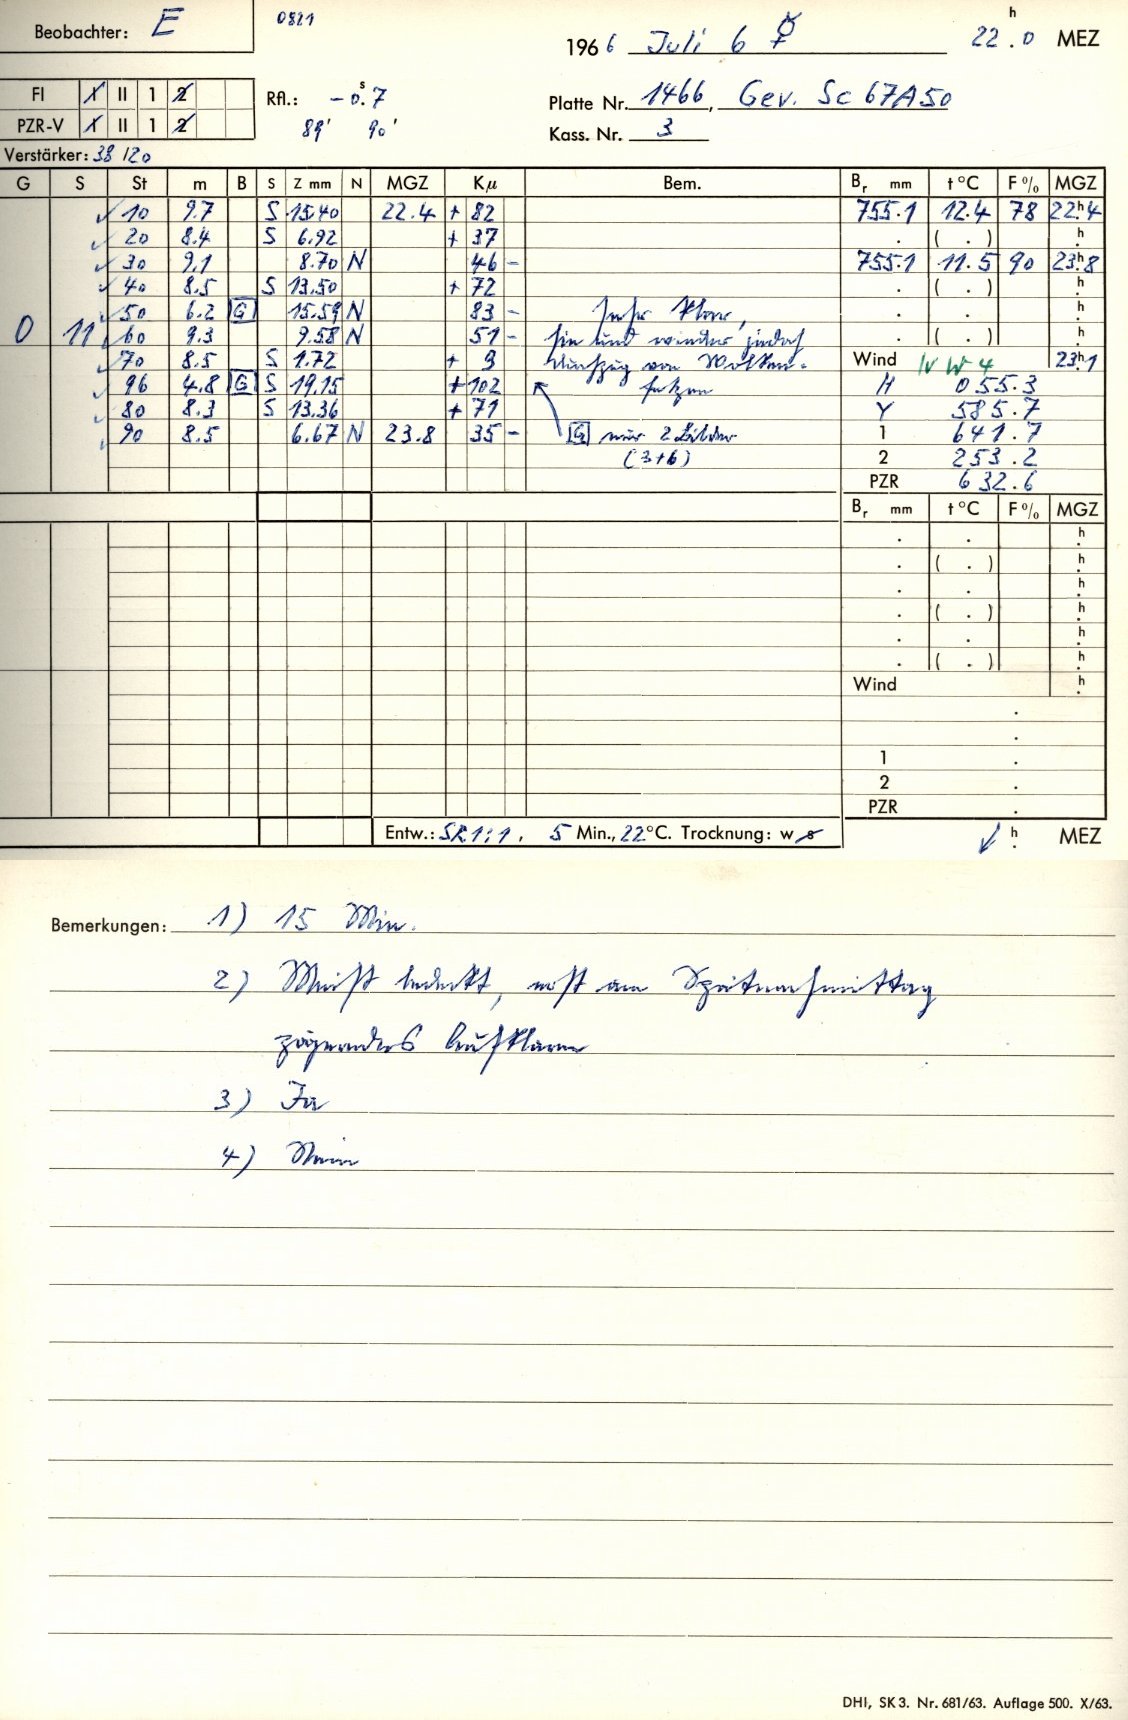 Beobachter: E
0821
1966 Juli 6 ☿ 22.0 h MEZ
FI I II 1 2
PZR-V I II 1 2
Rfl.: -0.s7
89' 90'
Platte Nr. 1466, Gev. Sc 67A50
Kass. Nr. 3
Verstärker: 38 120
G S St m B S Z mm N MGZ Kμ Bem. Br mm t °C F % MGZ
10 9.7 S 15.40 22.4 + 82 755.1 12.4 78 22h4
20 8.4 S 6.92 + 37 . ( . ) h.
30 9.1 8.70 N 46 - 755.1 11.5 90 23h8
40 8.5 S 13.50 + 72 . ( . ) h.
50 6.2 G 15.59 N 83 - Sehr klar, . . h.
0 11 60 9.3 9.58 N 51 - hin und wieder jedoch . ( . ) h.
70 8.5 S 1.72 + 9 Durchzug von Wolken- Wind W 4 23h1
96 4.8 G S 19.15 + 102 fetzen H 055.3
80 8.3 S 13.36 + 71 Y 585.7
90 8.5 6.67 N 23.8 35 - G nur 2 Bilder 1 641.7
(3+6) 2 253.2
PZR 632.6
Br mm t °C F % MGZ
. . h.
. ( . ) h.
. . h.
. ( . ) h.
. . h.
. ( . ) h.
Wind h.
.
.
1 .
2 .
PZR .
Entw.: SR 1:1, 5 Min., 22 °C. Trocknung: w s
h. MEZ
Bemerkungen: 1) 15 Min.
2) Meist bedeckt, erst am Spätnachmittag
zögerndes Aufklaren
3) Ja
4) Nein
DHI, SK 3. Nr. 681/63. Auflage 500. X/63.